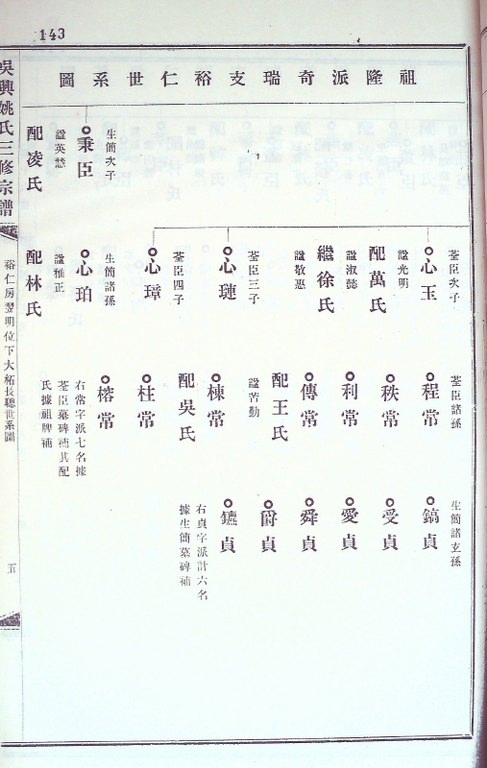 143
祖隆派奇瑞支裕仁世系圖
吳興姚氏三修宗譜
裕仁房翌明位下大柘長聰世系圖
五
生簡次子
秉臣
諡英慧
配凌氏
荃臣次子
心玉
諡光明
配萬氏
諡淑懿
繼徐氏
諡敬惠
荃臣三子
心璉
荃臣四子
心璋
生簡諸孫
心珀
諡雅正
配林氏
荃臣諸孫
程常
秩常
利常
傳常
配王氏
諡苦勤
棟常
配吳氏
柱常
榕常
右常字派七名據
荃臣墓碑補其配
氏據祖牌補
生簡諸玄孫
鎬貞
受貞
愛貞
舜貞
爵貞
鑣貞
右貞字派計六名
據生簡墓碑補